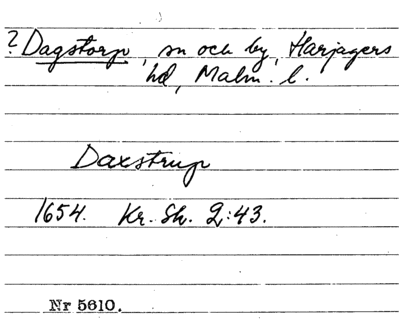 ? Dagstorp, sn och by, Harjagers
hd, Malm. l.
Daxstrup
1654. Kr. Sk. 2:43.
Nr 5610.